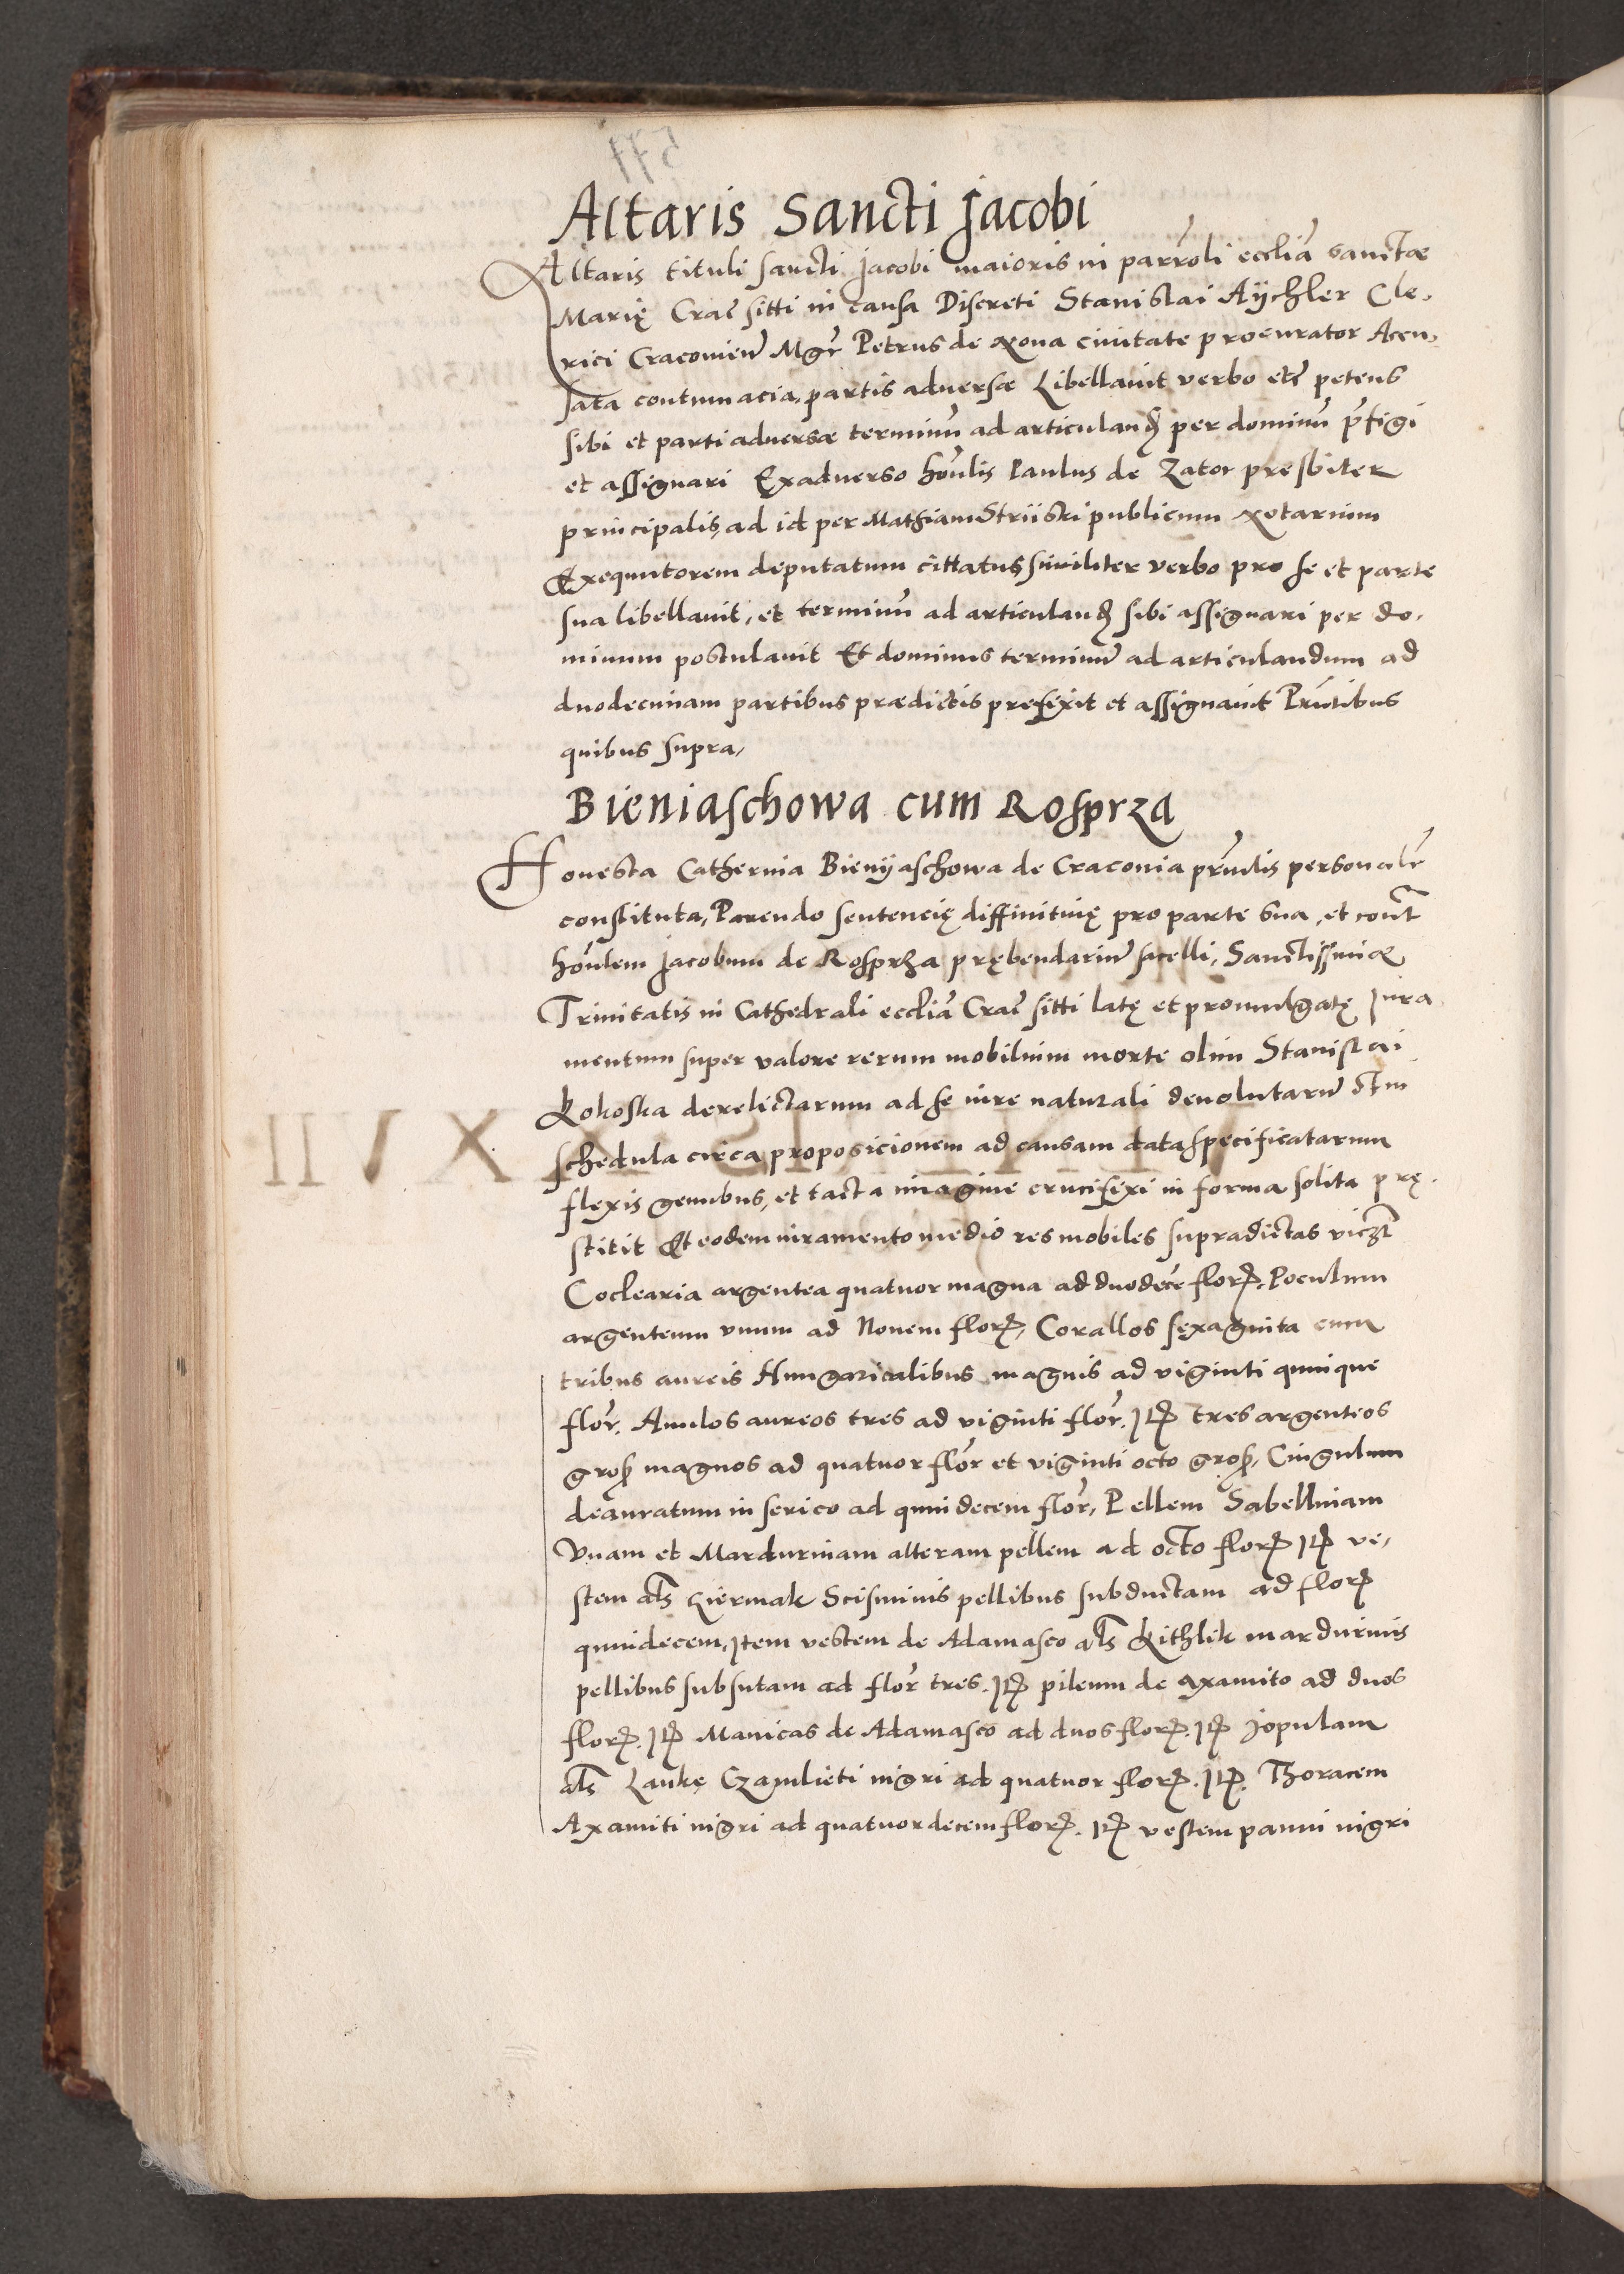 Altaris Sancti Jacobi
Altaris tituli sancti Jacobi maioris in parroli eccliā sanctæ
Marię Crac̄ sitti in causa Discreti Stanislai Aÿchler Cle,
rici Cracovien̄ Mgr̄ Petrus de Nova civitate procurator Accu,
sata contumacia, partis adversæ Libellavit verbo etc̄ petens
sibi et parti adversæ terminū ad articulandȝ per dominū p̄figi
et assignari Exadverso hon̄lis Paulus de Zator presbiter
principalis, ad id per Mathiam Striiski publicum Notarium
Exequutorem deputatum cittatus, similiter verbo pro se et parte
sua libellavit, et terminū ad articulandȝ sibi assignari per do,
minum postulavit Et dominus terminū ad articulandum ad
duodecimam partibus prædictis prefixit et assignavit Prn̄tibus
quibus supra,
Bieniaschowa cum Rosprza
Honesta Catherina Bienÿaschowa de Craconia prn̄tis personalr̄
constituta, Parendo sentencię diffinitivę pro parte sua, et cont̄
hon̄lem Jacobum de Rosprza prębendariū sacelli, Sanctissimæ
Trinitatis in Cathedrali eccliā Crac̄ sitti latę et promulgatę Jura
mentum super valore rerum mobilium morte olim Stanislai
Kokoska derelictarum ad se iure naturali devolutarū
schedula circa proposicionem ad causam data specificatarum
flexis genubus, et tacta imagine crucifixi in forma solita prę,
stitit Et eodem iuramento medio res mobiles supradictas viczt
Coclearia argentea quatuor magna ad duodecē florȝ, Poculum
argenteum unum ad Novem florȝ, Corallos sexaginta cum
tribus aureis Hungaricalibus magnis ad viginti quinique
flor̄. Anulos aureos tres ad viginti flor̄. Itȝ tres argenteos
groȝ magnos ad quatuor flor̄ et viginti octo groȝ, Cingulum
deauratum in serico ad quindecem flor̄, Pellem Sabellinam
Unam et Mardurinam alteram pellem ad octo florȝ Itȝ ve,
stem als Czermak Scisminis pellibus subductam ad florȝ
quindecem, Item vestem de Adamasco als Kithlik mardurinis
pellibus subsutam ad flor̄ tres. Itȝ pileum de axamito ad duos
florȝ. Itȝ Manicas de Adamasco ad duos florȝ. Itȝ Jopulam
als Lankę Czamlieti nigri ad quatuor florȝ. Itȝ. Thoracem
Axamiti nigri ad quatuordecem florȝ. Itȝ vestem panni nigri